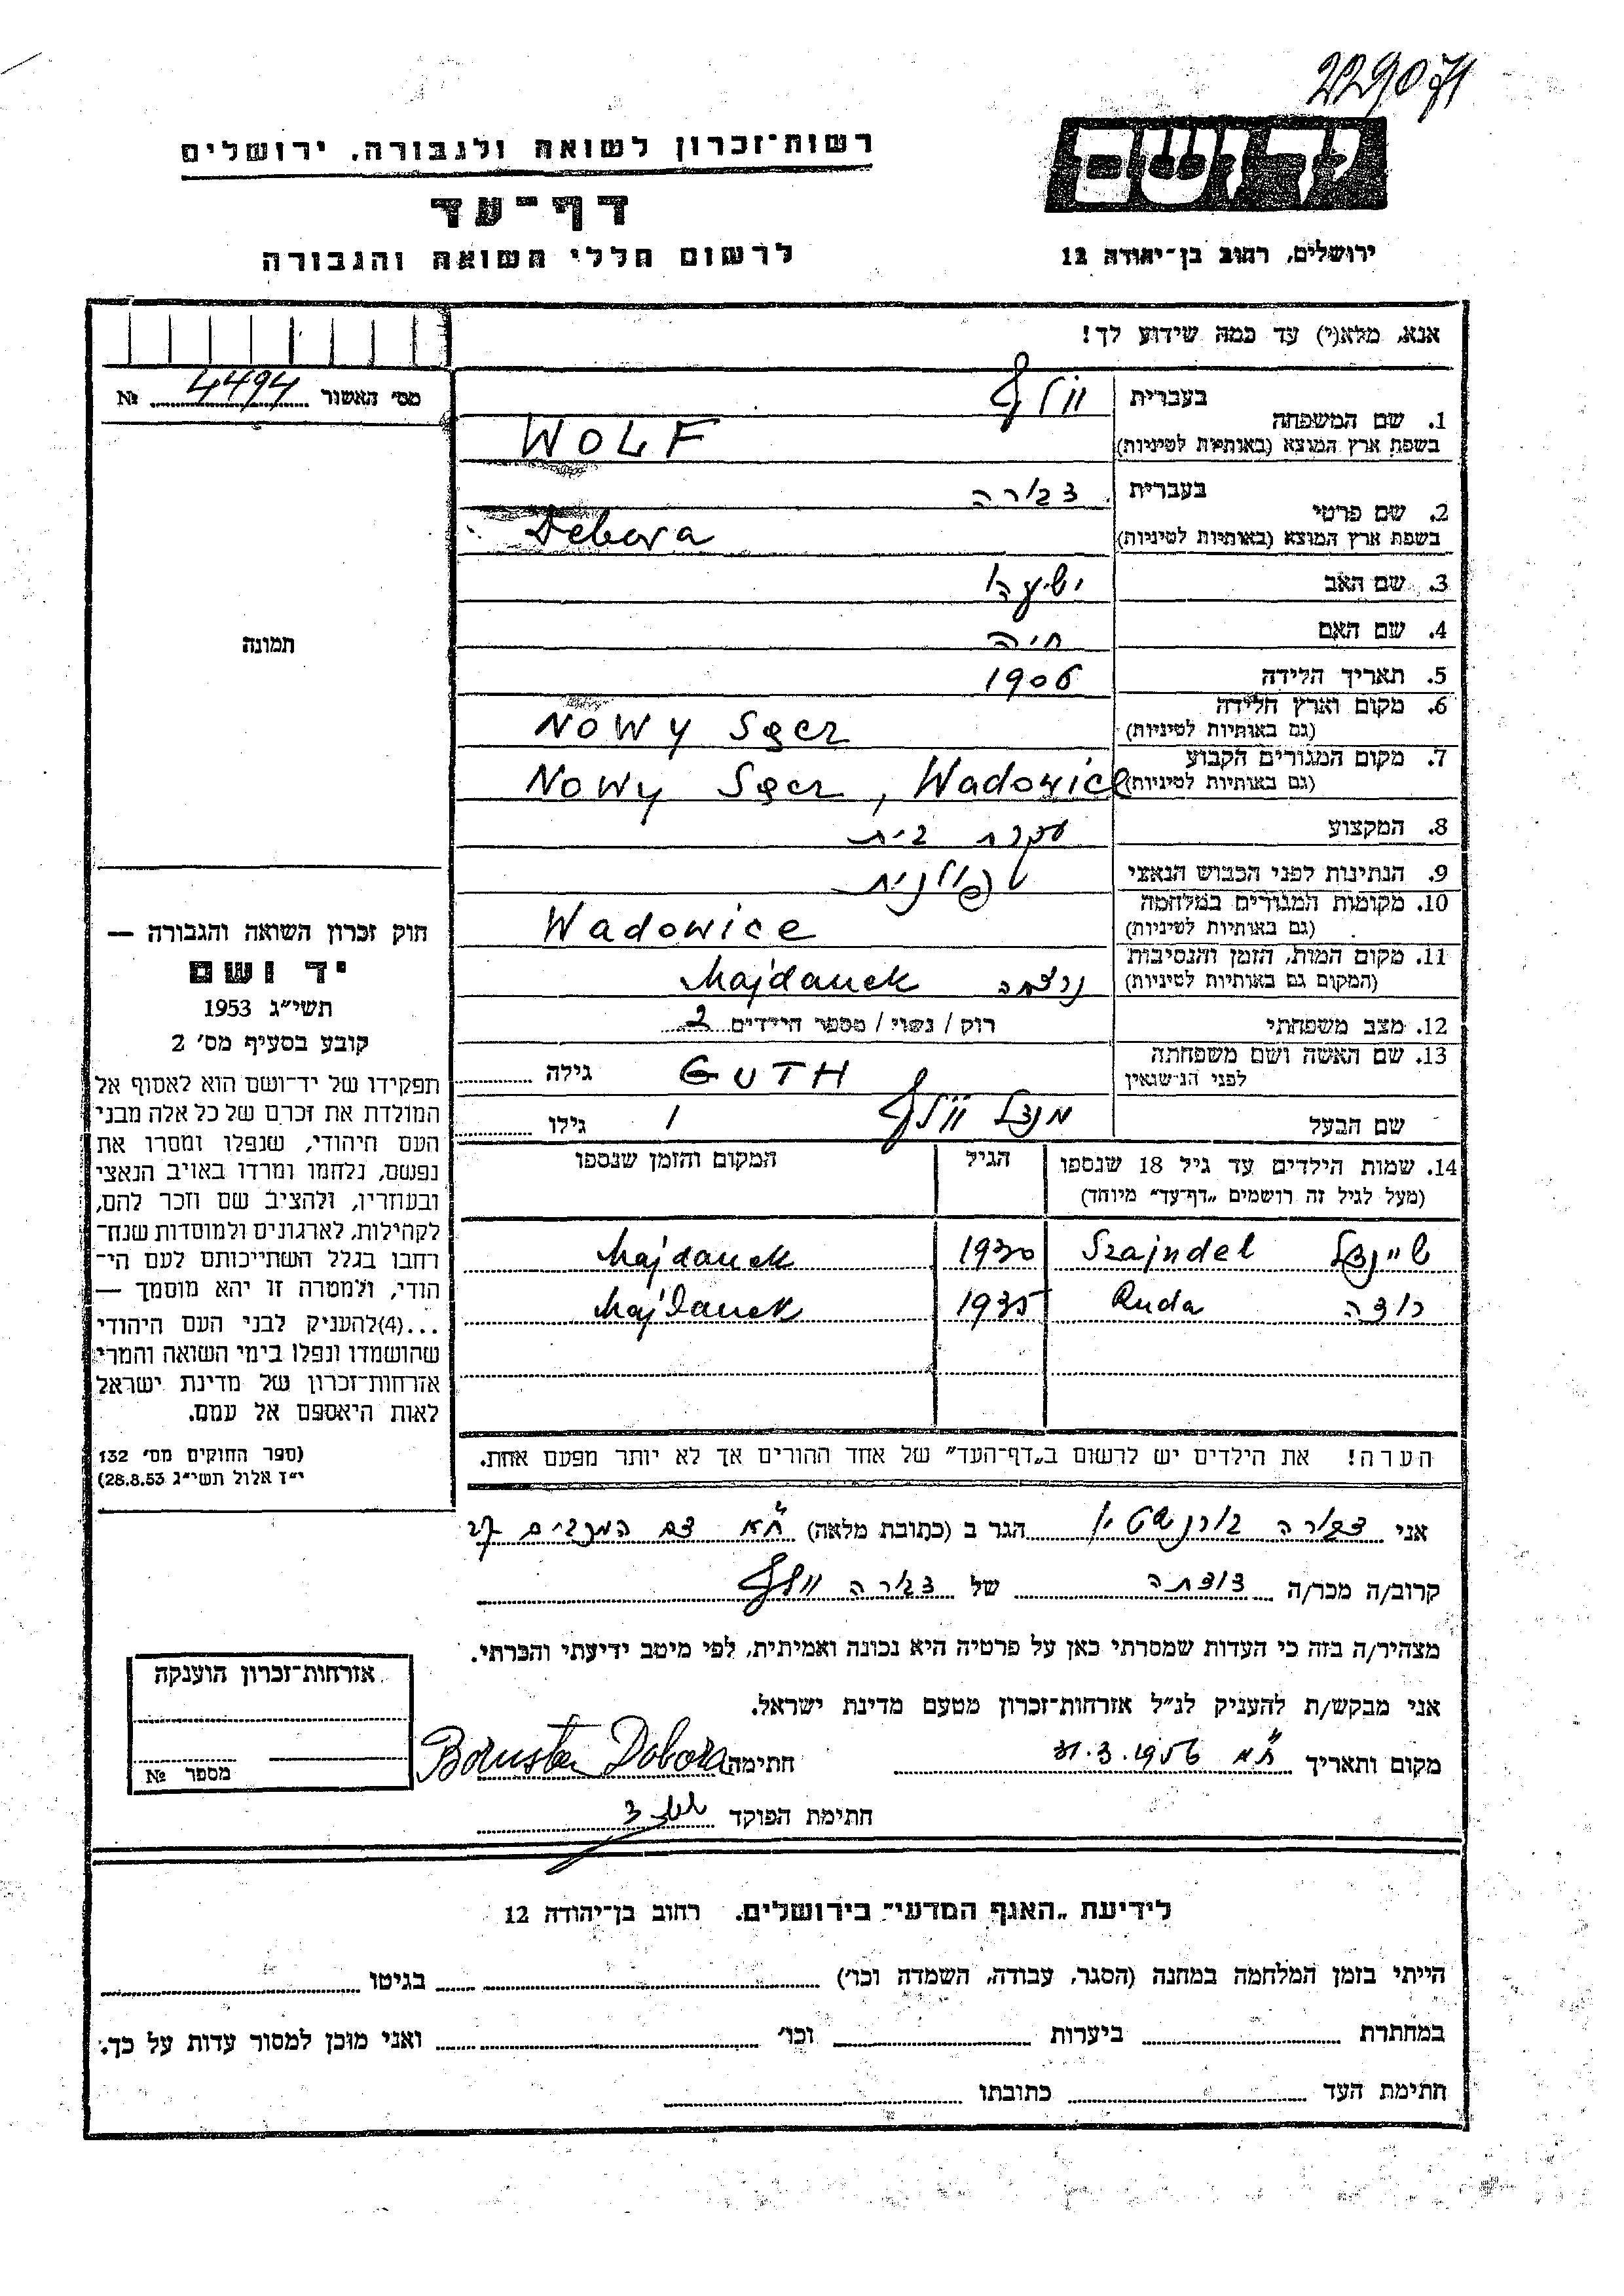 229071
רשות־זכרון לשואה ולגבורה. ירושלים
יד ושם
דף־עד
לרשום חללי השואה והגבורה
ירושלים, רחוב בן־יהודה 12
אנא, מלא(י) עד כמה שידוע לך!
מס׳ האשור 4494 №
1. שם המשפחה בעברית וולף
בשפת ארץ המוצא (באותיות לטיניות) WOLF
2. שם פרטי בעברית דבורה
בשפת ארץ המוצא (באותיות לטיניות) Debora
3. שם האב ישעיהו
4. שם האם חיה
תמונה
5. תאריך הלידה 1906
6. מקום וארץ הלידה
(גם באותיות לטיניות) Nowy Sącz
7. מקום המגורים הקבוע
(גם באותיות לטיניות) Nowy Sącz, Wadowice
8. המקצוע עקרת בית
9. הנתינות לפני הכבוש הנאצי פולנית
10. מקומות המגורים במלחמה
(גם באותיות לטיניות) Wadowice
11. מקום המות, הזמן והנסיבות
(המקום גם באותיות לטיניות) נרצחה Majdanek
12. מצב משפחתי רוק / נשוי / מספר הילדים 2
13. שם האשה ושם משפחתה
לפני הנשואין GUTH גילה
שם הבעל מנדל וולף גילו
14. שמות הילדים עד גיל 18 שנספו הגיל המקום והזמן שנספו
(מעל לגיל זה רושמים „דף־עד״ מיוחד)
שיינדל Szajndel 1930 Majdanek
רודה Ruda 1935 Majdanek
הערה! את הילדים יש לרשום ב„דף־העד״ של אחד ההורים אך לא יותר מפעם אחת.
חוק זכרון השואה והגבורה —
יד ושם
תשי״ג 1953
קובע בסעיף מס׳ 2
תפקידו של יד־ושם הוא לאסוף אל
המולדת את זכרם של כל אלה מבני
העם היהודי, שנפלו ומסרו את
נפשם, נלחמו ומרדו באויב הנאצי
ובעוזריו, ולהציב שם וזכר להם,
לקהילות, לארגונים ולמוסדות שנח־
רחבו בגלל השתייכותם לעם הי־
הודי, ולמטרה זו יהא מוסמך —
...(4)להעניק לבני העם היהודי
שהושמדו ונפלו בימי השואה והמרי
אזרחות־זכרון של מדינת ישראל
לאות היאספם אל עמם.
(ספר החוקים מס׳ 132
י״ז אלול תשי״ג 28.8.53)
אני דבורה בורנשטיין הגר ב (כתובת מלאה) ת״א
קרוב/ה מכר/ה דודתה של דבורה וולף
מצהיר/ה בזה כי העדות שמסרתי כאן על פרטיה היא נכונה ואמיתית, לפי מיטב ידיעתי והכרתי.
אני מבקש/ת להעניק לנ״ל אזרחות־זכרון מטעם מדינת ישראל.
מקום ותאריך ת״א 31.3.1956 חתימה
חתימת הפוקד
אזרחות־זכרון הוענקה
מספר №
לידיעת „האגף המדעי״ בירושלים. רחוב בן־יהודה 12
הייתי בזמן המלחמה במחנה (הסגר, עבודה, השמדה וכו׳) בגיטו
במחתרת ביערות וכו׳ ואני מוכן למסור עדות על כך.
חתימת העד כתובתו